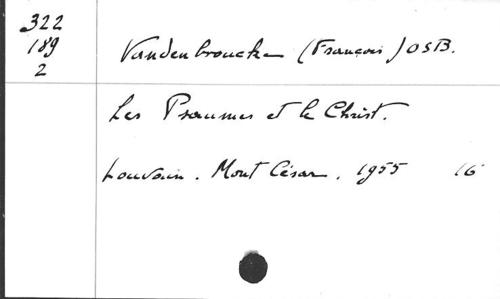 322
189
2
Vandenbroucke (François) OSB.
Les Psaumes et le Christ.
Louvain. Mont César. 1955 16